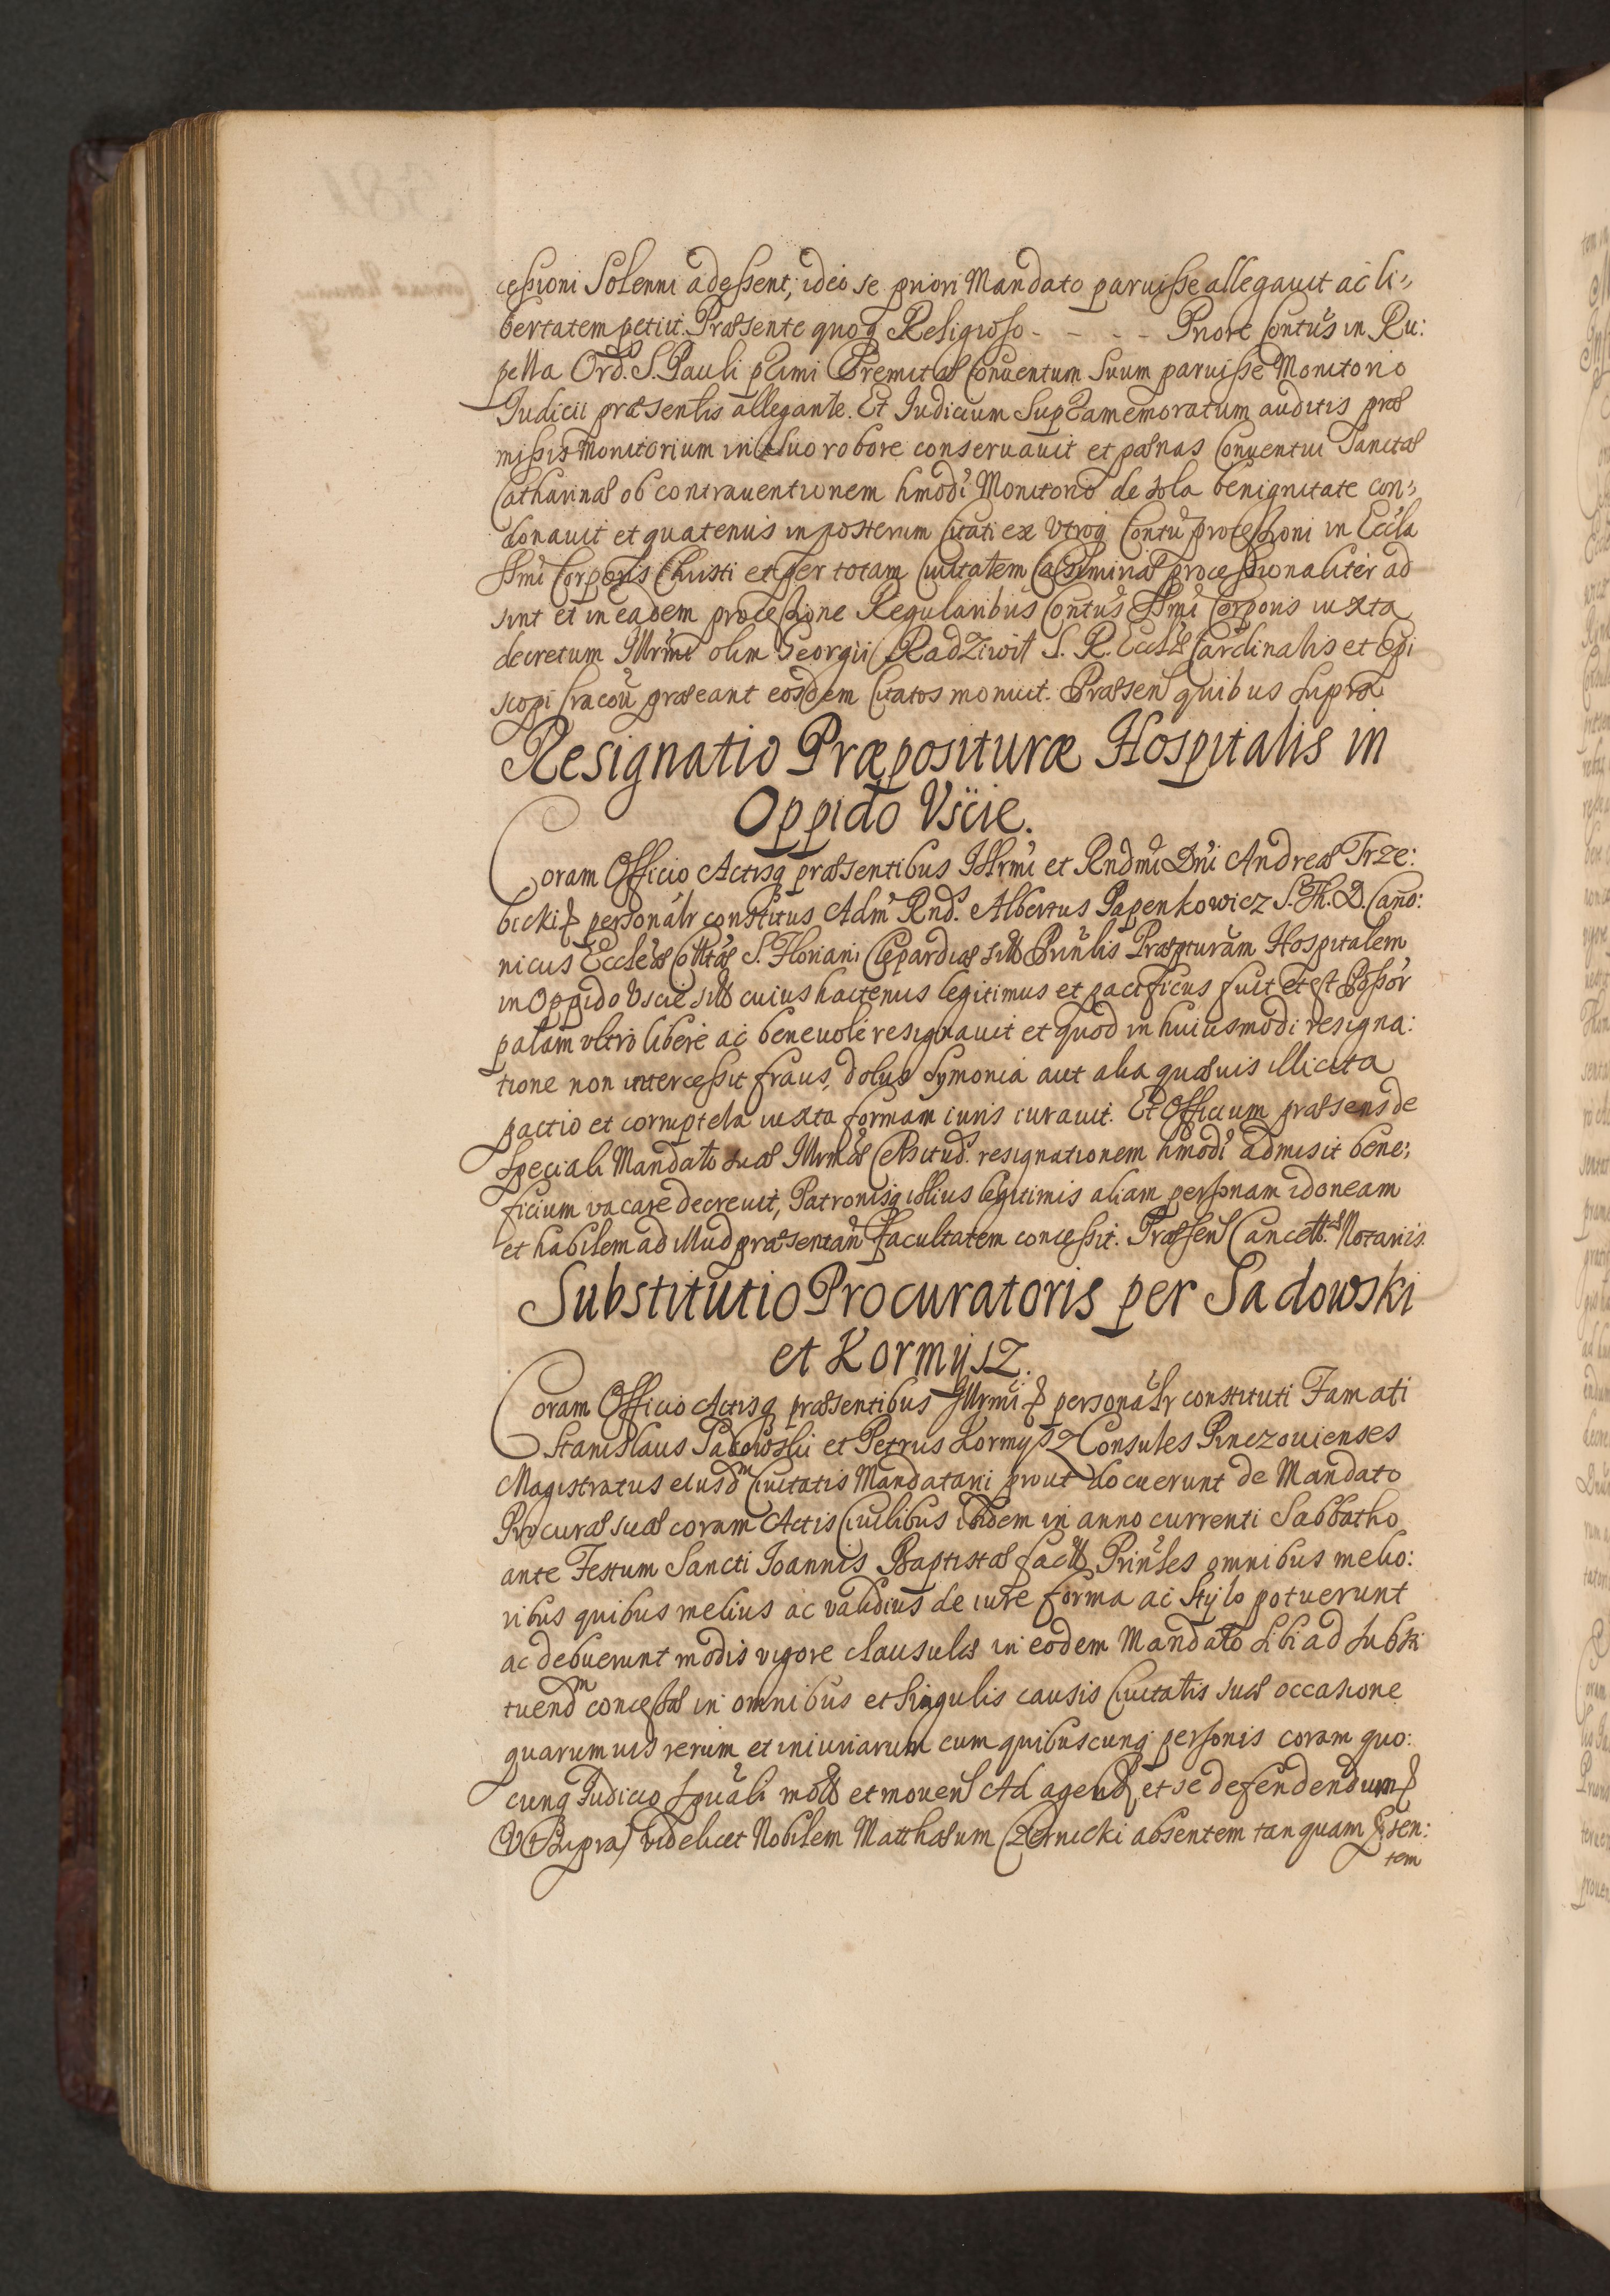 cessioni Solenni adessent, ideo se priori Mandato paruisse allegauit ac li-
bertatem petiit. Præsente quoq Religioso - - - - Priore Contus in Ru:
pella Ord. S. Pauli primi Eremitæ Conuentum Suum paruisse Monitorio
Iudicii præsentis allegante. Et Iudicium Supramemoratum auditis præ
missis Monitorium in suo robore conseruauit et pœnas Conuentui Sanctæ
Catharinæ ob contrauentionem hmodi Monitorio de sola benignitate con-
donauit et quatenus in posterum Citati ex Vtroq Contu processioni in Eccla
SSmi Corporis Christi et per totam Ciuitatem Casimiriæ processionaliter ad
sint et in eadem processione Regularibus Contus SSmi Corporis iuxta
decretum Illrmi olim Georgii Radziwił S. R. Ecclæ Cardinalis et Epi
scopi Cracou præeant eosdem Citatos monuit. Præsen quibus Supra
Resignatio Præposituræ Hospitalis in
Oppido Vscie.
Coram Officio Actisq præsentibus Illrmi et Rndmi Dni Andreæ Trze:
bicki personalr constitus Adm Rnd. Albertus Papenkowicz S. Th. D. Cano:
nicus Eccleæ Colltæ S. Floriani Clepardiæ siue Prinlis Præpturam Hospitalem
in Oppido Vscie siue cuius hactenus legitimus et pacificus fuit et est Possor
palam vltro libere ac beneuole resignauit et quod in huiusmodi resigna:
tione non intercessit fraus, dolus Symonia aut alia quæuis illicita
pactio et corruptela iuxta formam iuris iurauit. Et Officium præsens de
Speciali Mandato suæ Illrmæ Celsitud. resignationem hmodi admisit bene:
ficium vacare decreuit, Patronisq illius legitimis aliam personam idoneam
et habilem ad illud præsentan facultatem concessit. Præsen Cancell. Notariis.
Substitutio Procuratoris per Sadowski
et Kormijsz.
Coram Officio Actisq præsentibus Illrmi personalr constituti Famati
Stanislaus Sadowski et Petrus Kormysz Consules Pinczouienses
Magistratus eiusdm Ciuitatis Mandatarii prout docuerunt de Mandato
Procuræ suæ coram Actis Ciuilibus ibidem in anno currenti Sabbatho
ante Festum Sancti Ioannis Baptistæ Prinles omnibus melio:
ribus quibus melius ac validius de iure forma ac Stylo potuerunt
ac debuerunt modis vigore clausulæ in eodem Mandato Sibi ad Substi
tuendm concessæ in omnibus et Singulis causis Ciuitatis suæ occasione
quarumuis rerum et iniuriarum cum quibuscunq personis coram quo:
cunq Iudicio Spuali et mouen Ad agend et se defendendum
(Vt Supra) videlicet Nobilem Matthæum Czernicki absentem tanquam præsen:
tem